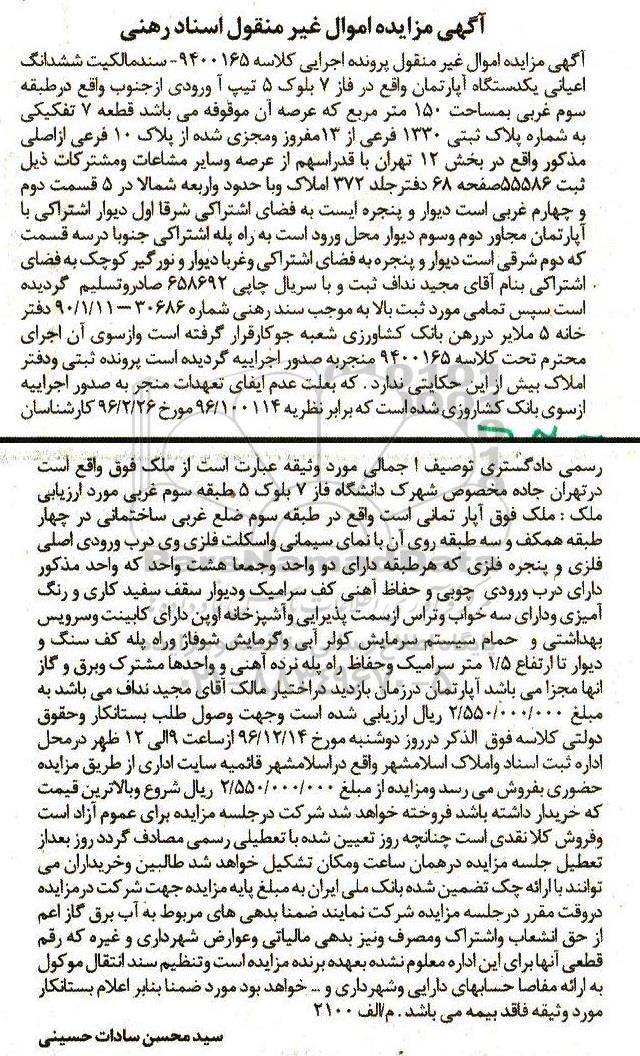 آگهی مزایده اموال غیر منقول اسناد رهنی
آگهی مزایده اموال غیر منقول پرونده اجرایی کلاسه ۹۴۰۰۱۶۵- سندمالکیت ششدانگ
اعیانی یکدستگاه آپارتمان واقع در فاز ۷ بلوک ۵ تیپ آ ورودی ازجنوب واقع درطبقه
سوم غربی بمساحت ۱۵۰ متر مربع که عرصه آن موقوفه می باشد قطعه ۷ تفکیکی
به شماره پلاک ثبتی ۱۳۳۰ فرعی از ۱۳مفروز ومجزی شده از پلاک ۱۰ فرعی ازاصلی
مذکور واقع در بخش ۱۲ تهران با قدراسهم از عرصه وسایر مشاعات ومشترکات ذیل
ثبت ۵۵۵۸۶صفحه ۶۸ دفترجلد ۳۷۲ املاک وبا حدود واربعه شمالا در ۵ قسمت دوم
و چهارم غربی است دیوار و پنجره ایست به فضای اشتراکی شرقا اول دیوار اشتراکی با
آپارتمان مجاور دوم وسوم دیوار محل ورود است به راه پله اشتراکی جنوبا درسه قسمت
که دوم شرقی است دیوار و پنجره به فضای اشتراکی وغربا دیوار و نورگیر کوچک به فضای
اشتراکی بنام آقای مجید نداف ثبت و با سریال چاپی ۶۵۸۶۹۲ صادروتسلیم گردیده
است سپس تمامی مورد ثبت بالا به موجب سند رهنی شماره ۳۰۶۸۶ – ۹۰/۱/۱۱ دفتر
خانه ۵ ملایر دررهن بانک کشاورزی شعبه جوکارقرار گرفته است وازسوی آن اجرای
محترم تحت کلاسه ۹۴۰۰۱۶۵ منجربه صدور اجراییه گردیده است پرونده ثبتی ودفتر
املاک بیش از این حکایتی ندارد . که بعلت عدم ایفای تعهدات منجر به صدور اجراییه
ازسوی بانک کشاورزی شده است که برابر نظریه ۹۶/۱۰۰۱۱۴ مورخ ۹۶/۲/۲۶ کارشناسان
رسمی دادگستری توصیف ا جمالی مورد وثیقه عبارت است از ملک فوق واقع است
درتهران جاده مخصوص شهرک دانشگاه فاز ۷ بلوک ۵ طبقه سوم غربی مورد ارزیابی
ملک : ملک فوق آپار تمانی است واقع در طبقه سوم ضلع غربی ساختمانی در چهار
طبقه همکف و سه طبقه روی آن با نمای سیمانی واسکلت فلزی وی درب ورودی اصلی
فلزی و پنجره فلزی که هرطبقه دارای دو واحد وجمعا هشت واحد که واحد مذکور
دارای درب ورودی چوبی و حفاظ آهنی کف سرامیک ودیوار سقف سفید کاری و رنگ
آمیزی ودارای سه خواب وتراس ازسمت پذیرایی وآشپزخانه اوپن دارای کابینت وسرویس
بهداشتی و حمام سیستم سرمایش کولر آبی وگرمایش شوفاژ وراه پله کف سنگ و
دیوار تا ارتفاع ۱/۵ متر سرامیک وحفاظ راه پله نرده آهنی و واحدها مشترک وبرق و گاز
انها مجزا می باشد آپارتمان درزمان بازدید دراختیار مالک آقای مجید نداف می باشد به
مبلغ ۲/۵۵۰/۰۰۰/۰۰۰ ریال ارزیابی شده است وجهت وصول طلب بستانکار وحقوق
دولتی کلاسه فوق الذکر درروز دوشنبه مورخ ۹۶/۱۲/۱۴ ازساعت ۹الی ۱۲ ظهر درمحل
اداره ثبت اسناد واملاک اسلامشهر واقع دراسلامشهر قائمیه سایت اداری از طریق مزایده
حضوری بفروش می رسد ومزایده از مبلغ ۲/۵۵۰/۰۰۰/۰۰۰ ریال شروع وبالاترین قیمت
که خریدار داشته باشد فروخته خواهد شد شرکت درجلسه مزایده برای عموم آزاد است
وفروش کلا نقدی است چنانچه روز تعیین شده با تعطیلی رسمی مصادف گردد روز بعداز
تعطیل جلسه مزایده درهمان ساعت ومکان تشکیل خواهد شد طالبین وخریداران می
توانند با ارائه چک تضمین شده بانک ملی ایران به مبلغ پایه مزایده جهت شرکت درمزایده
دروقت مقرر درجلسه مزایده شرکت نمایند ضمنا بدهی های مربوط به آب برق گاز اعم
از حق انشعاب واشتراک ومصرف ونیز بدهی مالیاتی وعوارض شهرداری و غیره که رقم
قطعی آنها برای این اداره معلوم نشده بعهده برنده مزایده است وتنظیم سند انتقال موکول
به ارائه مفاصا حسابهای دارایی وشهرداری و ... خواهد بود مورد ضمنا بنابر اعلام بستانکار
مورد وثیقه فاقد بیمه می باشد . م/الف ۲۱۰۰
سید محسن سادات حسینی